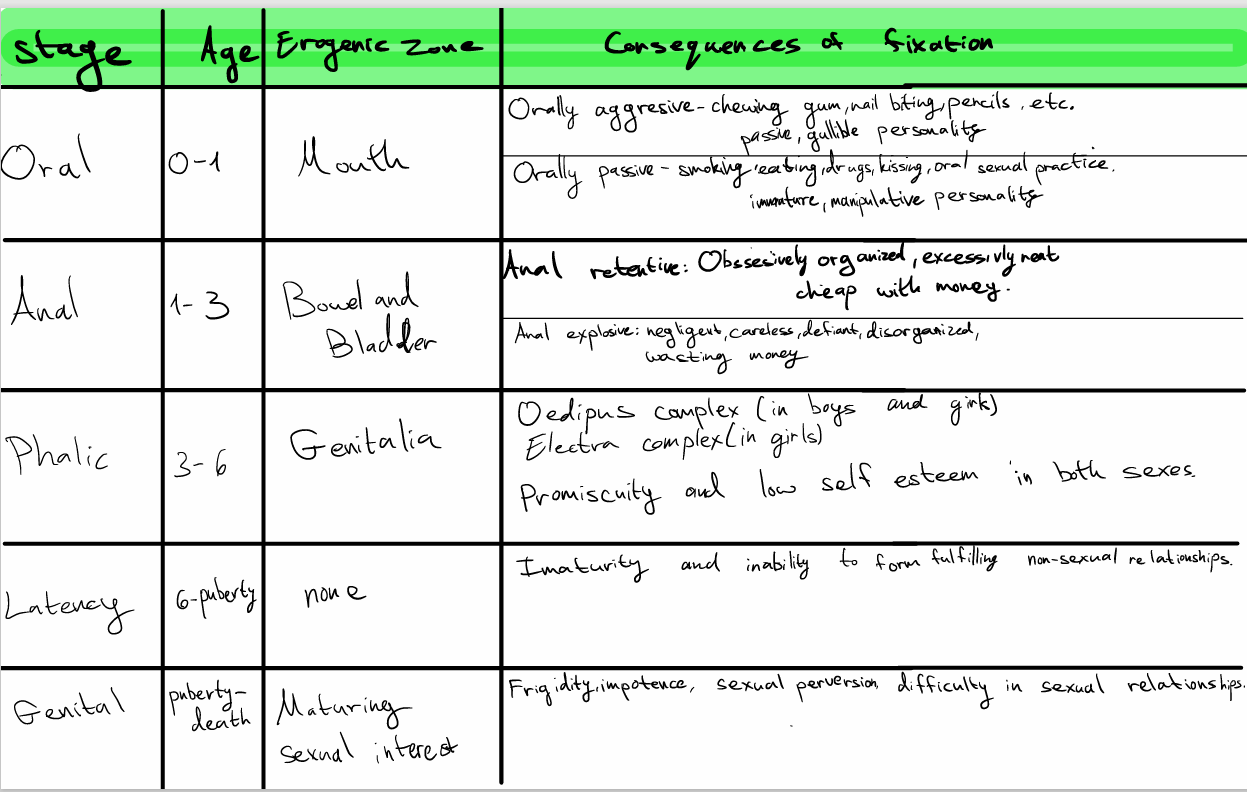 Stage Age Erogenic zone Consequences of fixation
Oral 0-1 Mouth
Orally aggresive - chewing gum, nail biting, pencils, etc.
passive, gullible personality
Orally passive - smoking, eating, drugs, kissing, oral sexual practice.
immature, manipulative personality
Anal 1-3 Bowel and
Bladder
Anal retentive: Obssesively organized, excessivly neat
cheap with money.
Anal explosive: negligent, careless, defiant, disorganized,
wasting money
Phalic 3-6 Genitalia
Oedipus complex (in boys and girls)
Electra complex (in girls)
Promiscuity and low self esteem in both sexes.
Latency 6-puberty none
Imaturity and inability to form fulfilling non-sexual relationships.
Genital puberty-
death
Maturing
sexual interest
Frigidity, impotence, sexual perversion, difficulty in sexual relationships.